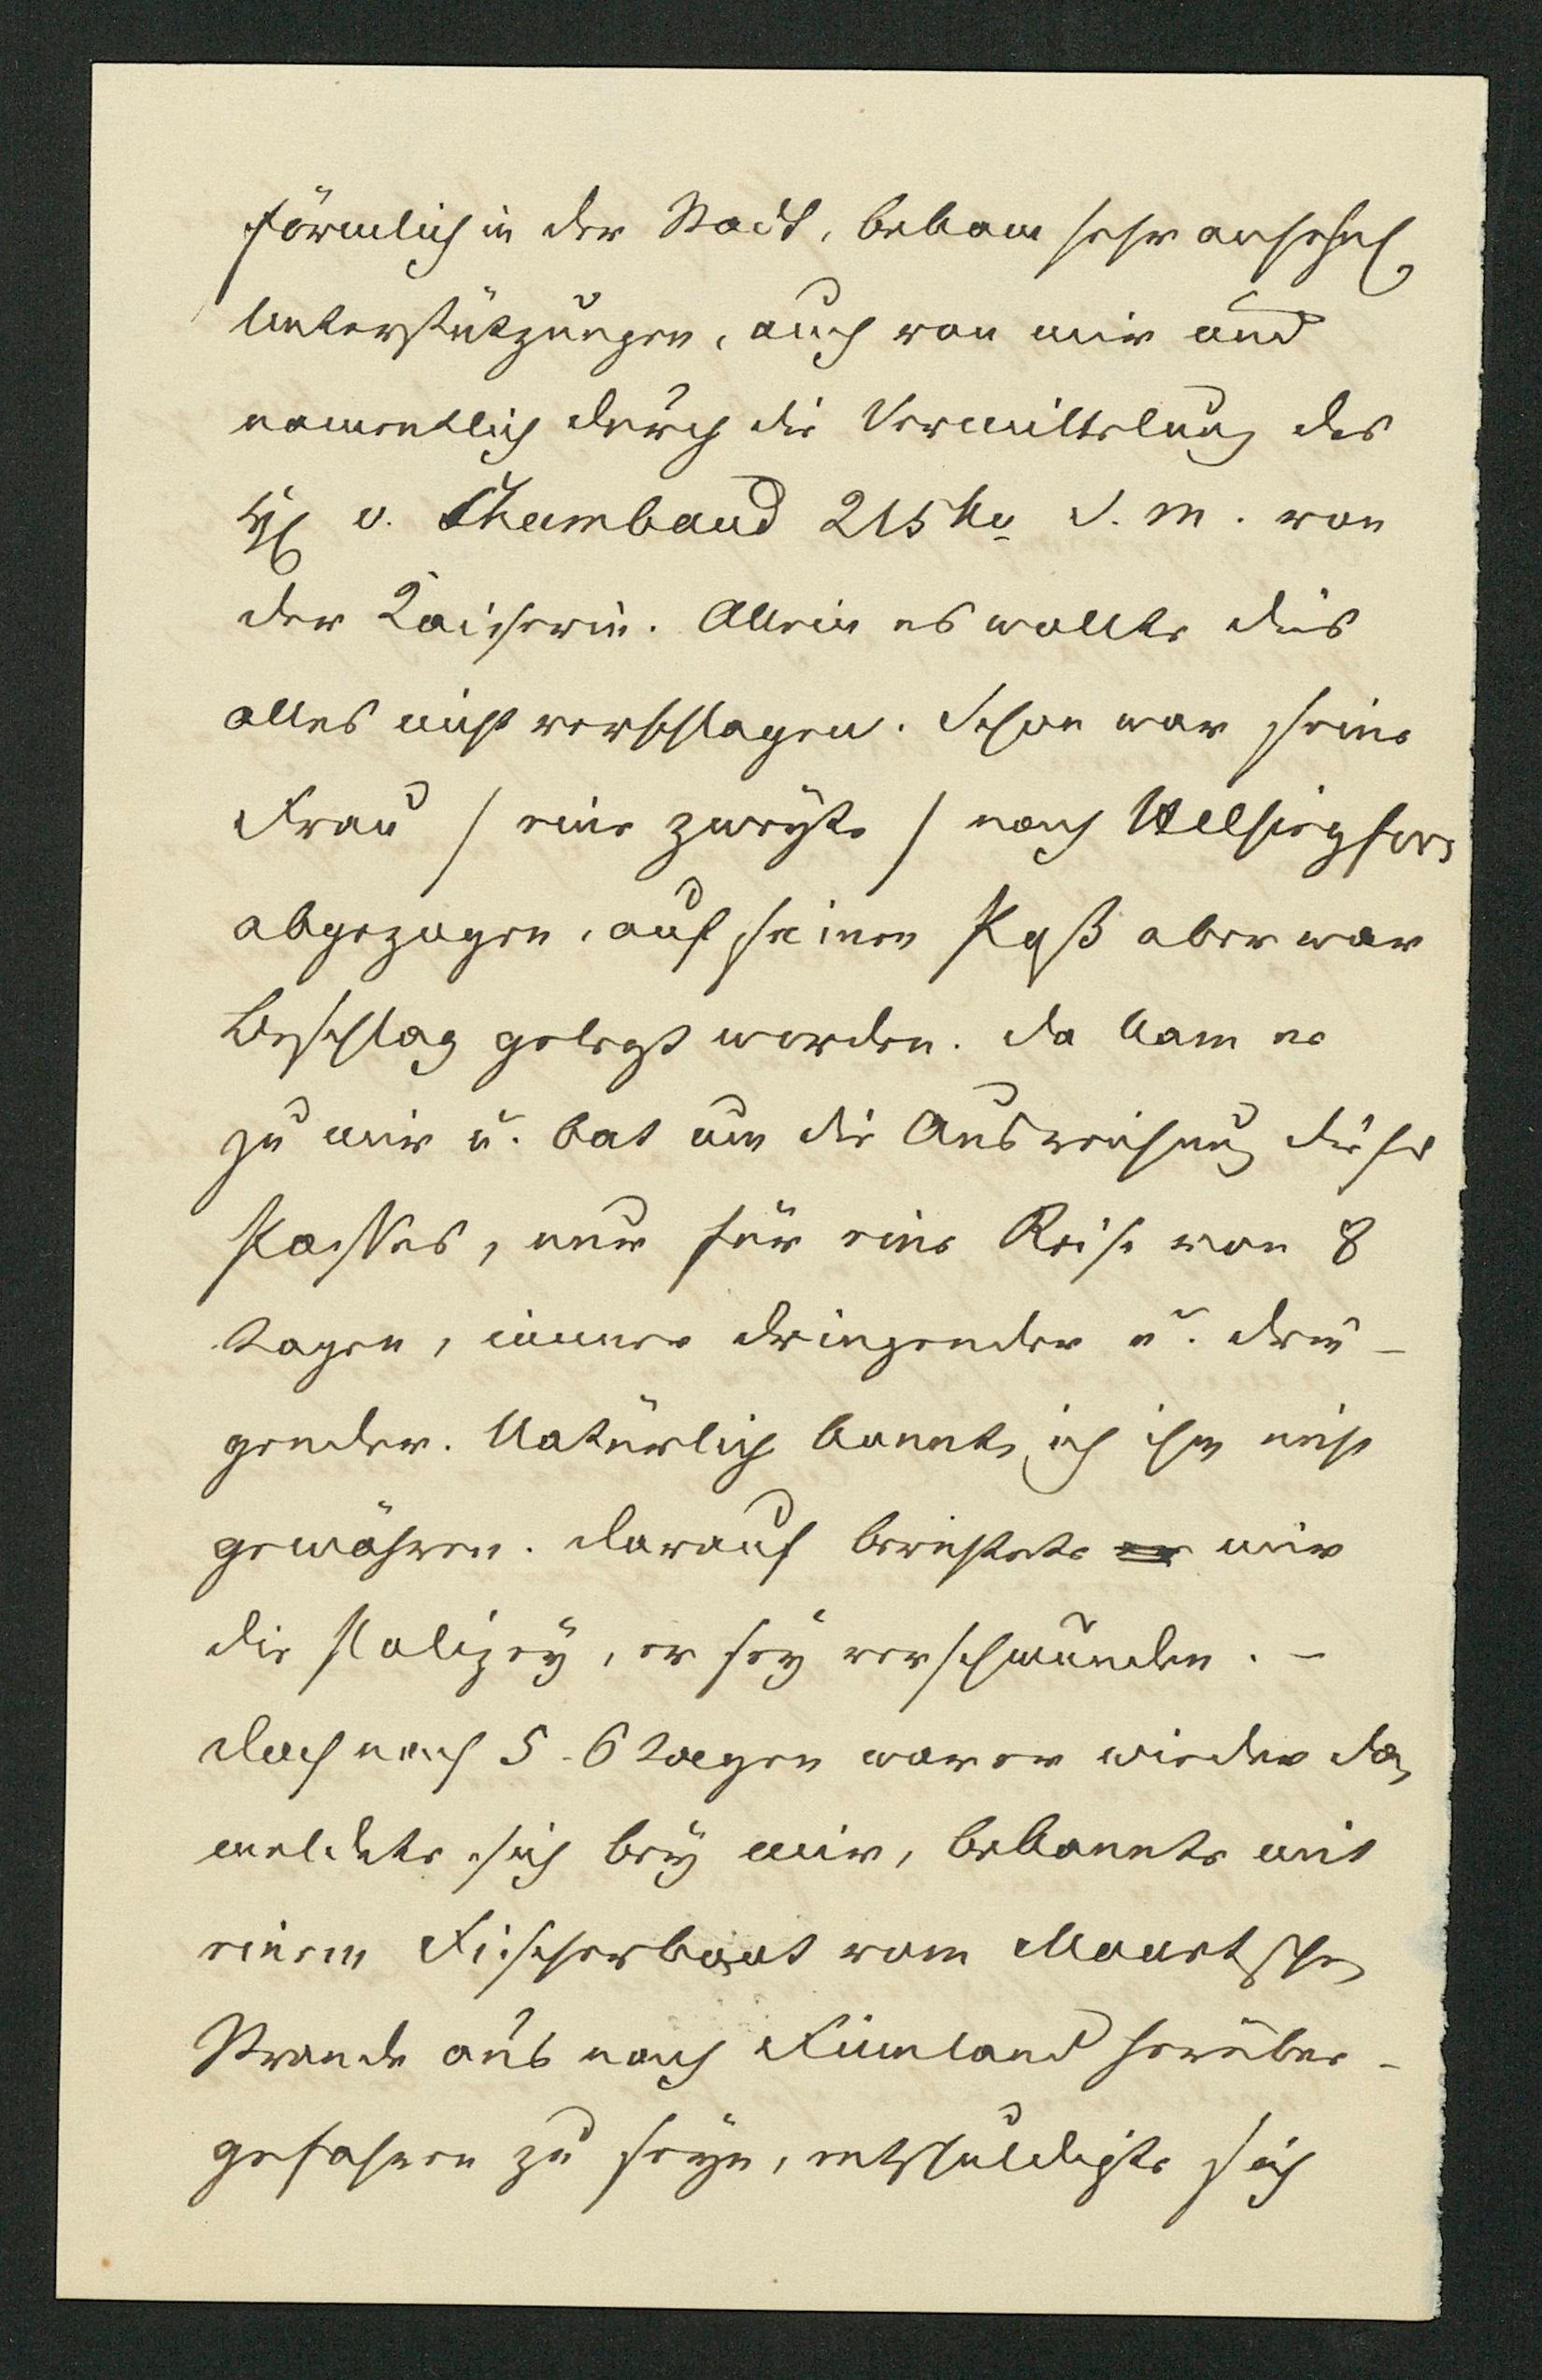 förmlich in der Stadt, bekam sehr ansehnl.
Unterstützungen, auch von mir und
namentlich durch die Vermittelung des
H. v. Chambaud 215 Ro S. M. von
der Kaiserin. Allein es wollte dies
alles nicht verschlagen. Schon war seine
Frau / eine zweyte / nach Helsingfors
abgezogen, auf seinen Paß aber war
Beschlag gelegt worden. Da kam er
zu mir u. bat um die Ausreichung dieses
Passes, nur für eine Reise von 8
Tagen, immer dringender u. drin-
gender. Natürlich konnte ich ihm nicht
gewähren. Darauf berichtete er mir
die Polizey, er sey verschwunden. –
Doch nach 5-6 Tagen war er wieder da,
meldete sich bey mir, bekannte mit
einem Fischerboot vom Maartschen
Strande aus nach Finnland herüber-
gefahren zu seyn, entschuldigte sich